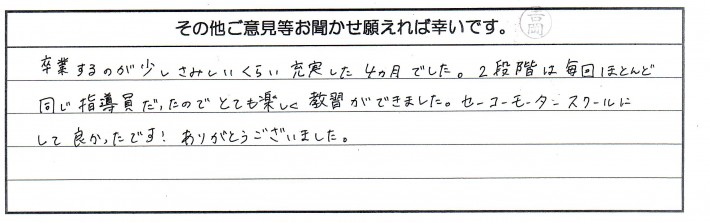 その他ご意見等お聞かせ願えれば幸いです。
高岡
卒業するのが少しさみしいくらい充実した4カ月でした。2段階は毎回ほとんど
同じ指導員だったのでとても楽しく教習ができました。セーコーモータースクールに
して良かったです!ありがとうございました。